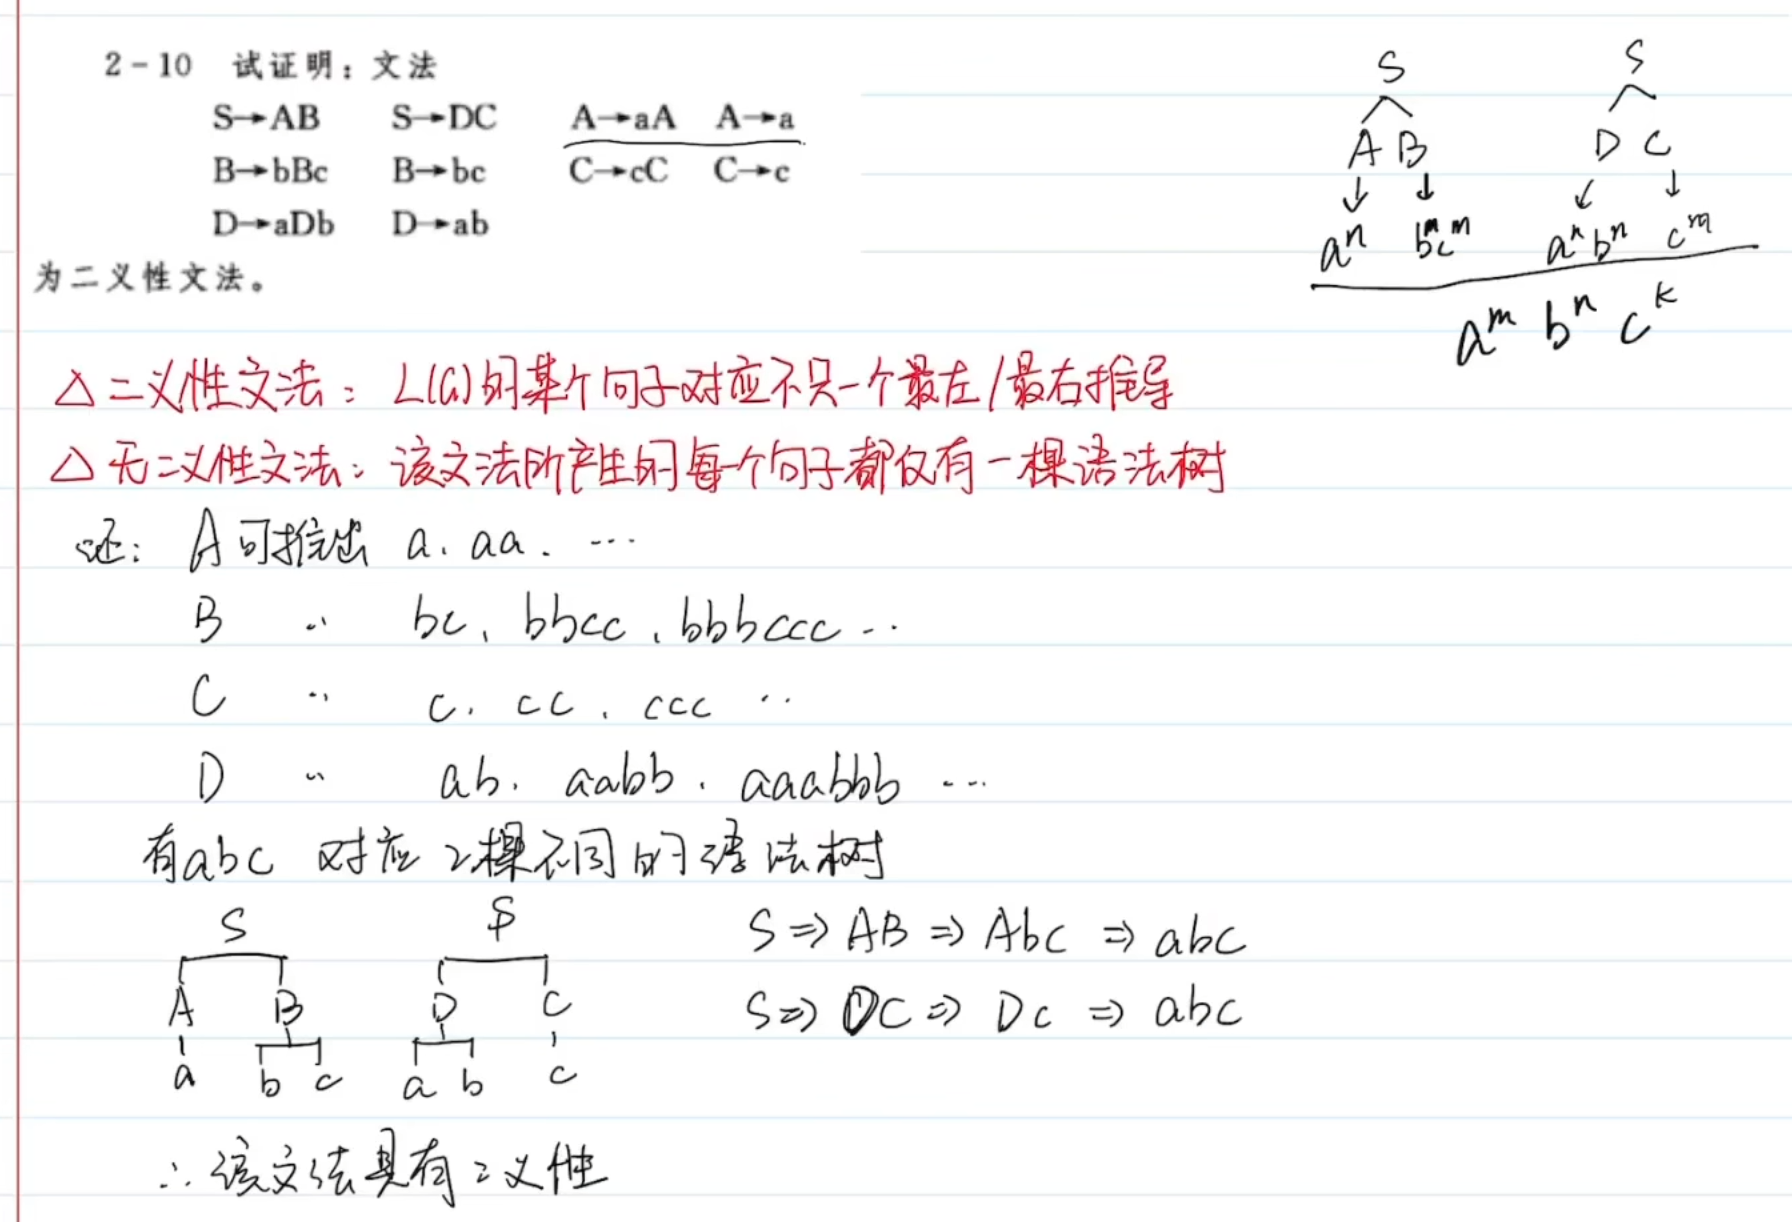 2-10 试证明：文法
S→AB S→DC A→aA A→a
B→bBc B→bc C→cC C→c
D→aDb D→ab
为二义性文法。
S S
A B D C
↓ ↓ ↙ ↓
aⁿ bᵐcᵐ aⁿbⁿ cᵐ
aᵐ bⁿ cᵏ
△ 二义性文法：L(G)的某个句子对应不只一个最左/最右推导
△ 无二义性文法：该文法所产生的每一个句子都仅有一棵语法树
证：A可推出 a、aa、…
B 〃 bc、bbcc、bbbccc …
C 〃 c、cc、ccc …
D 〃 ab、aabb、aaabbb …
有abc 对应2棵不同的语法树
S S
A B D C
a b c a b c
S⇒AB⇒Abc⇒abc
S⇒DC⇒Dc⇒abc
∴该文法具有二义性